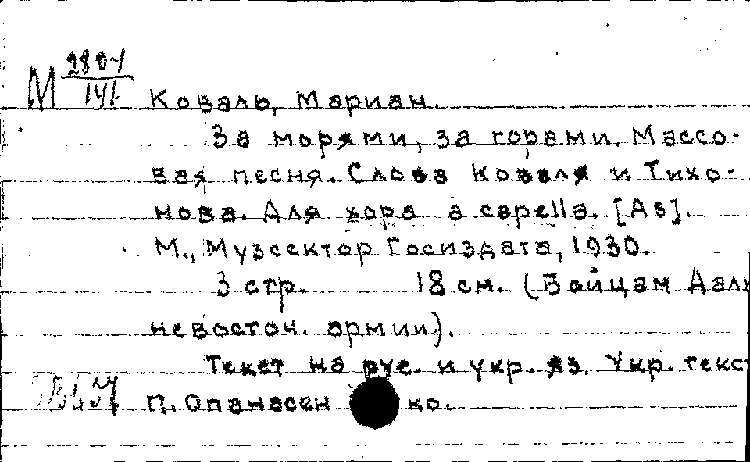 М 2801
141
Коваль, Мариан.
За морями, за горами. Массо-
вая песня. Слова Коваля и Тихо-
нова. Для хора a capella. [As].
М., Музсектор Госиздата, 1930.
3 стр. 18 см. (Бойцам Даль
невосточ. армии).
Текст на рус. и укр. яз. Укр. текст
П. Опанасен ко.